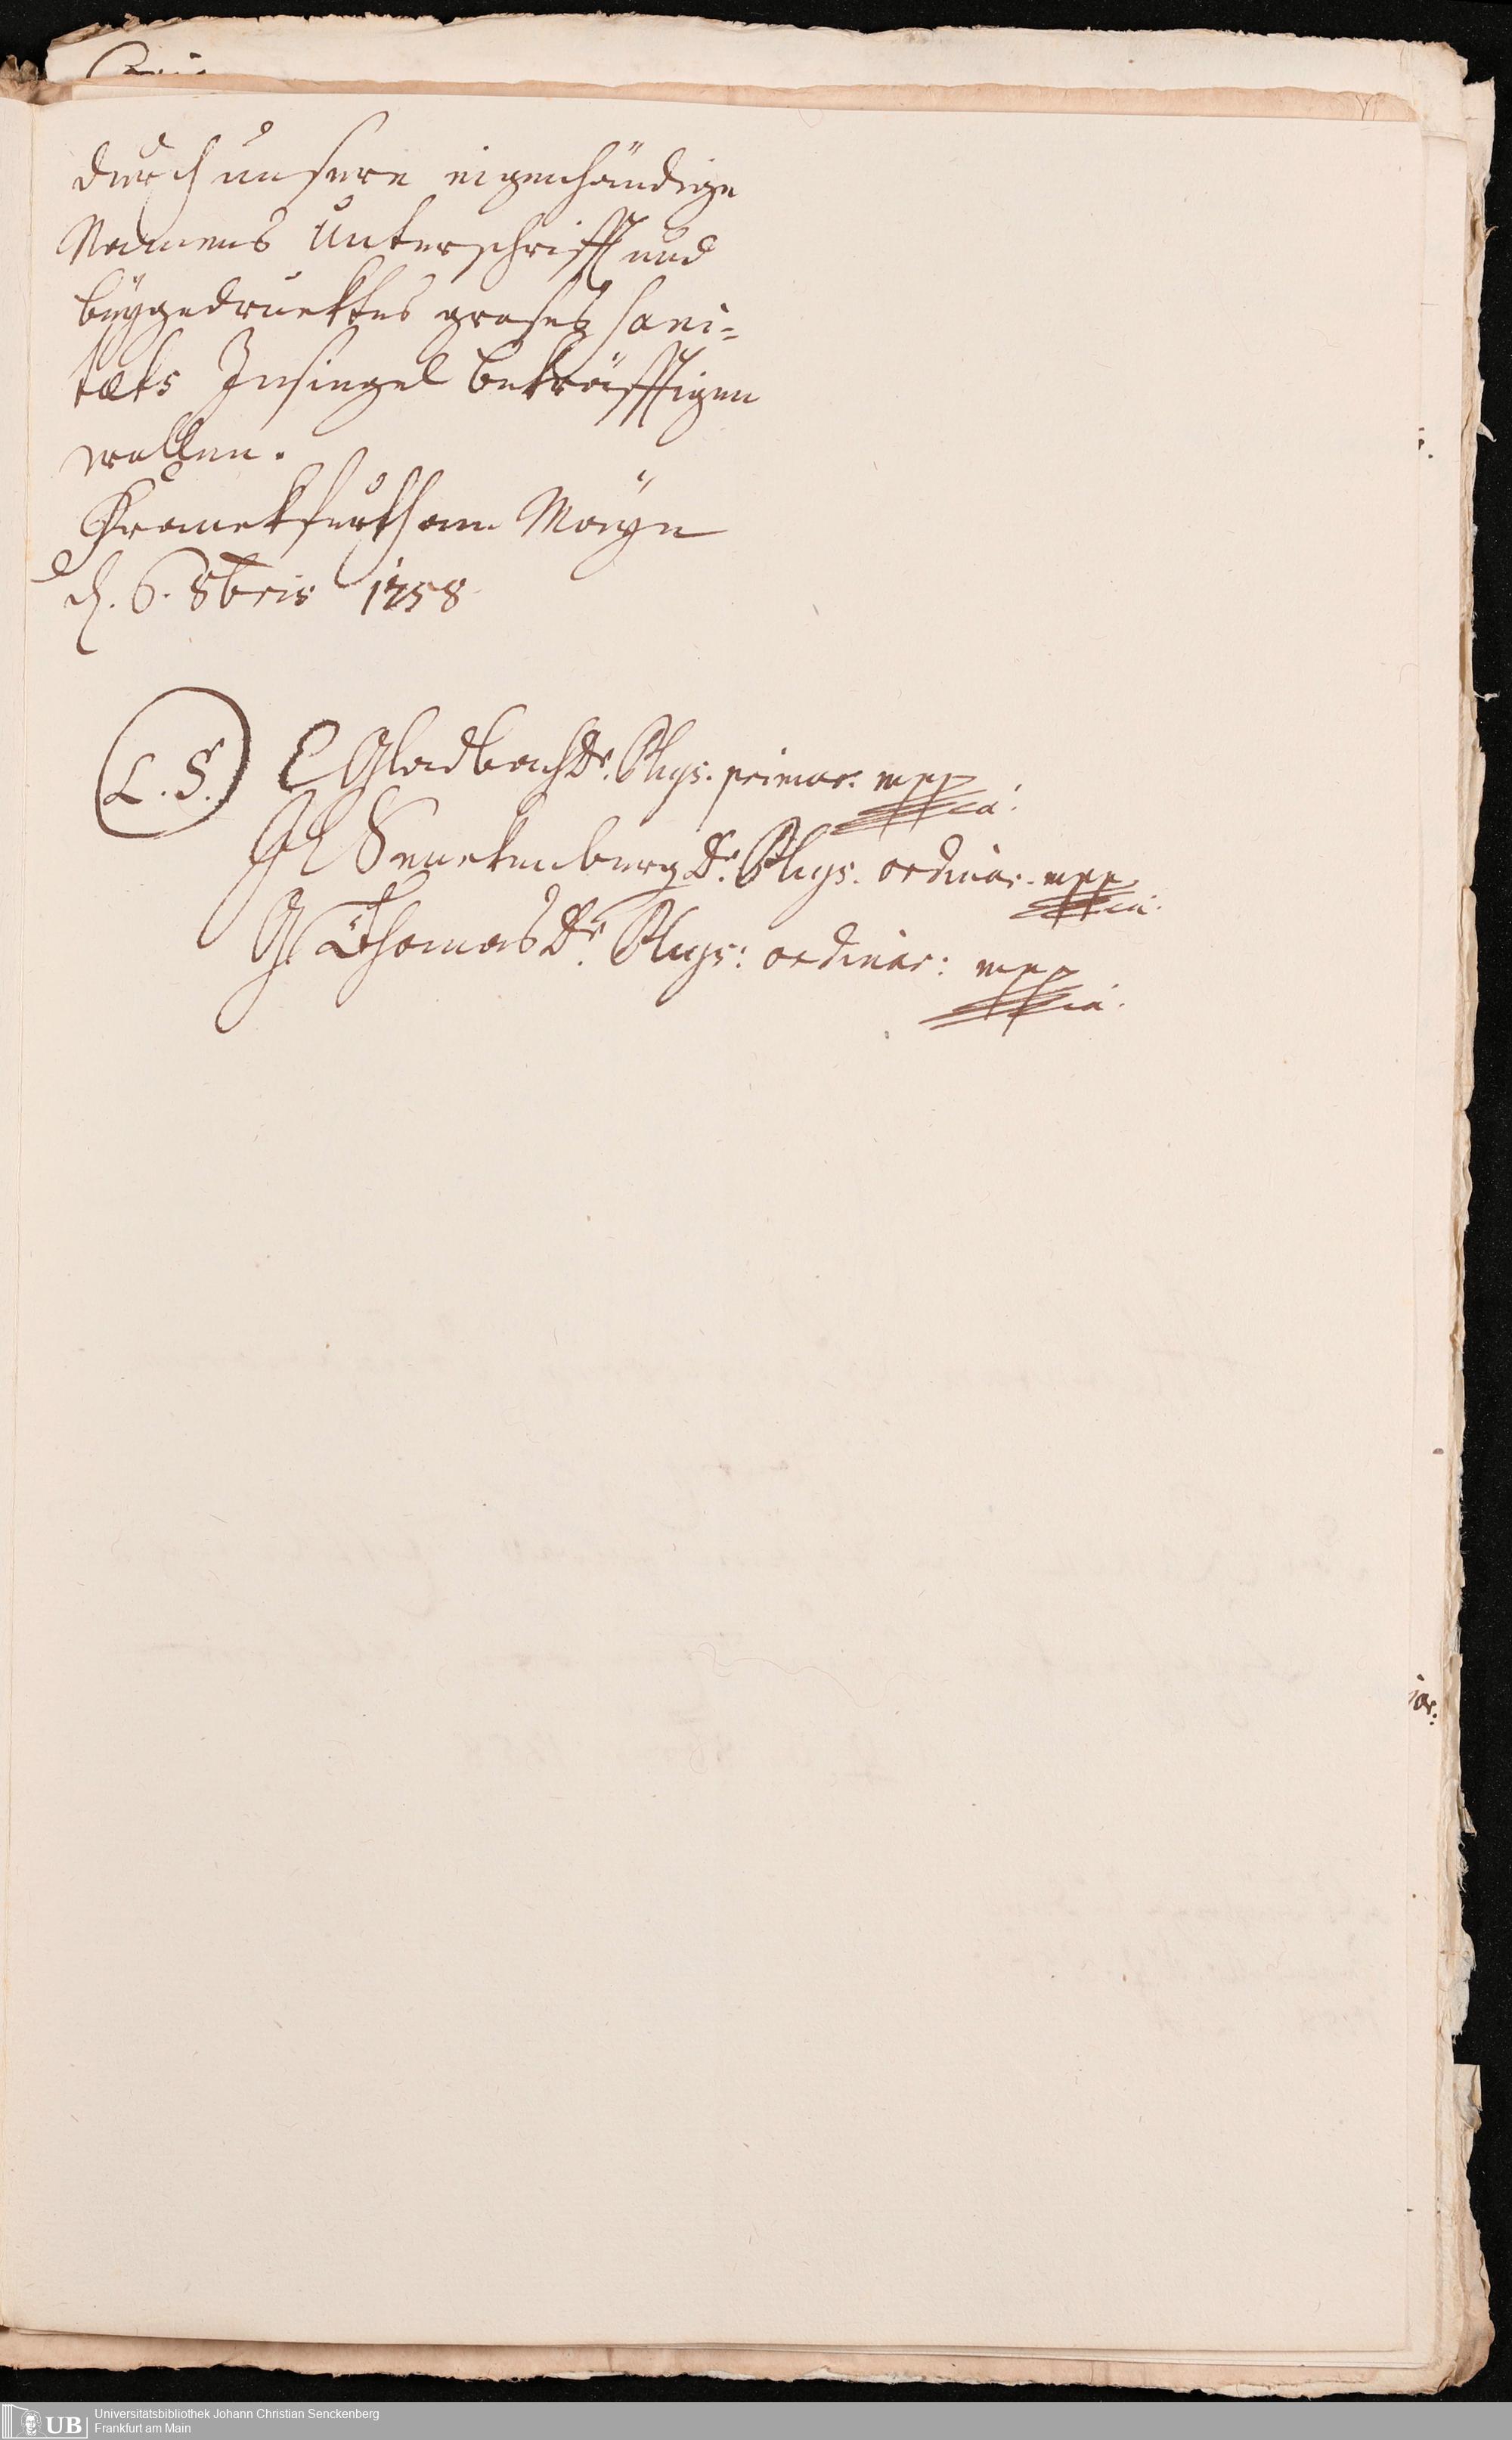 durch unsere eigenhändige
Namens Unterschrifft und
beygedrucktes groses Sani=
tæts Insiegel bekräfftigen
wollen.
Franckfurth am Mayn
d. 6. 8bris 1758
(L. S.) C Gladbach Dr. Phys. primar. mppria.
JC Senckenberg Dr. Phys. ordinar. mppria.
G Thomas Dr. Phys: ordinar: mppria.
iar:
UB Universitätsbibliothek Johann Christian Senckenberg
Frankfurt am Main